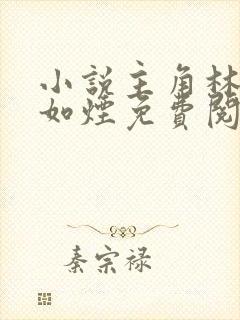 小説主角林
如煙免費閱
秦宗禄